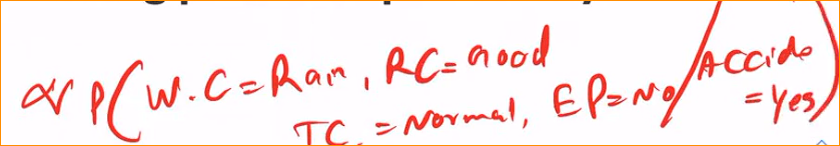 ∝ P(W.C=Rain, RC=Good
TC=Normal, EP=No/Accide
=Yes)